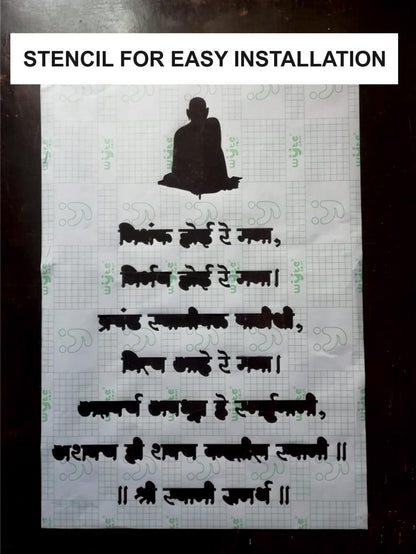 STENCIL FOR EASY INSTALLATION
निशंक होई रे मना,
निर्भय होई रे मना।
प्रचंड स्वामीबळ पाठीशी,
नित्य आहे रे मना।
अतर्क्य अवधूत हे स्मर्तुगामी,
अशक्य ही शक्य करतील स्वामी ॥
॥ श्री स्वामी समर्थ ॥